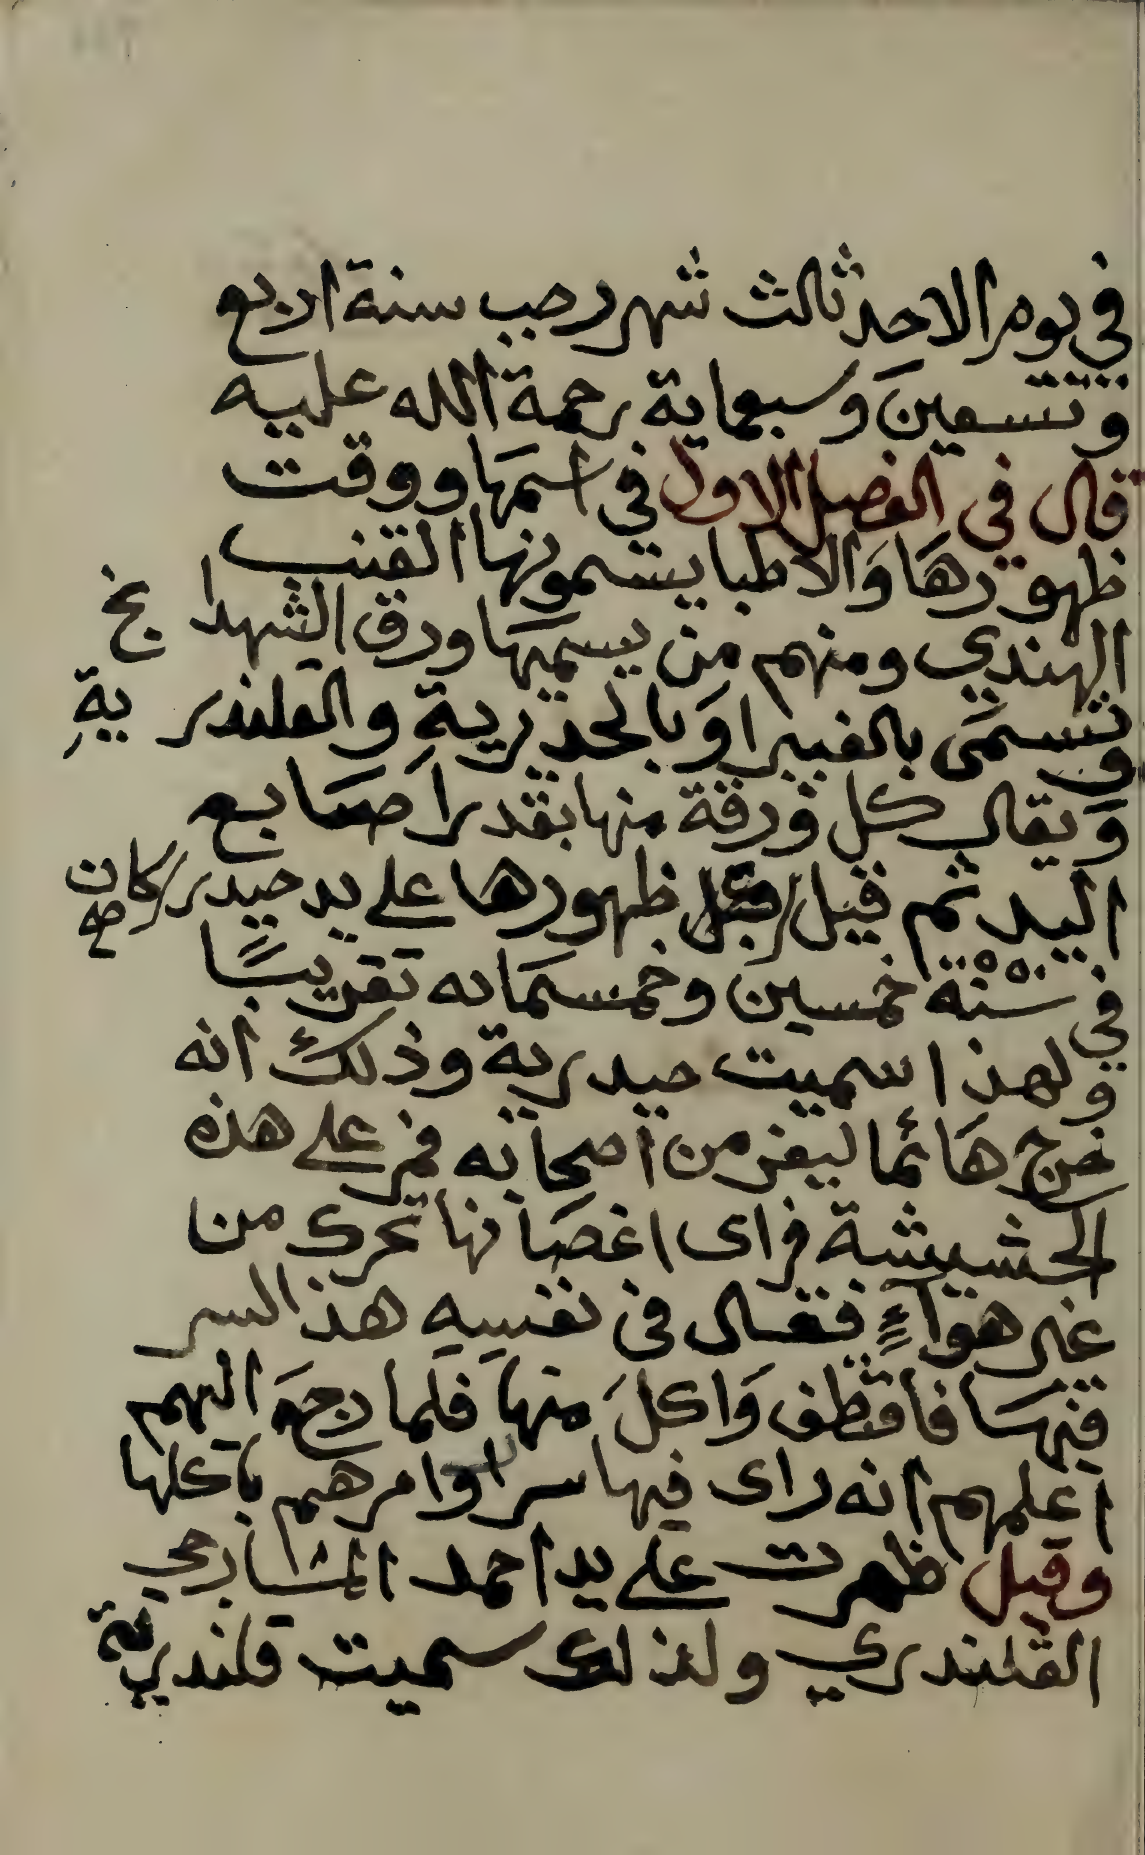 في يوم الاحد ثالث شهر رجب سنة اربع
وتسعين وسبعماية رحمة الله عليه
قال في الفصل الاول في اسمها ووقت
ظهورها والاطبا يسمونها القنب
الهندي ومنهم من يسميها ورق الشهدا نخ
وتسمى بالغبيرا وبالحيدرية والقلندرية
ويقال كل ورقة منها بقدر اصابع
اليد ثم قيل كان ظهورها على يد حيدر
في سنة خمسين وخمسمايه تقريبًا
ولهذا سميت حيدرية وذلك انه
خرج هائما لينفر من اصحابه فمر على هذه
الحشيشة فراى اغصانها تحرك من
غير هواءٍ فقال في نفسه هذا لسر
فيها فاقتطف واكل منها فلما رجع اليهم
اعلمهم انه راى فيها سرا وامرهم باكلها
وقيل ظهرت على يد احمد المسارجي
القلندري ولذلك سميت قلندرية